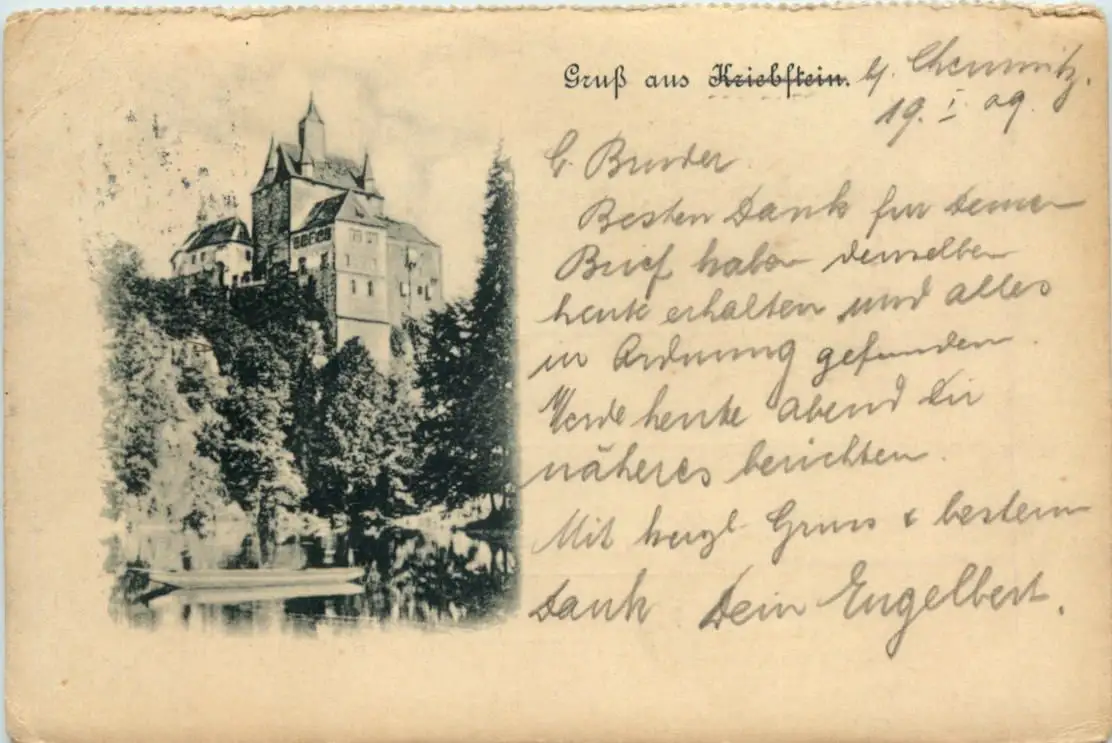 Gruß aus Kriebstein. b/. Chemnitz.
19. I. 09.
L. Bruder
Besten Dank für Deinen
Brief haben denselben
heute erhalten und alles
in Ordnung gefunden.
Werde heute Abend Dir
näheres berichten.
Mit herzl Gruss & bestem
Dank Dein Engelbert.